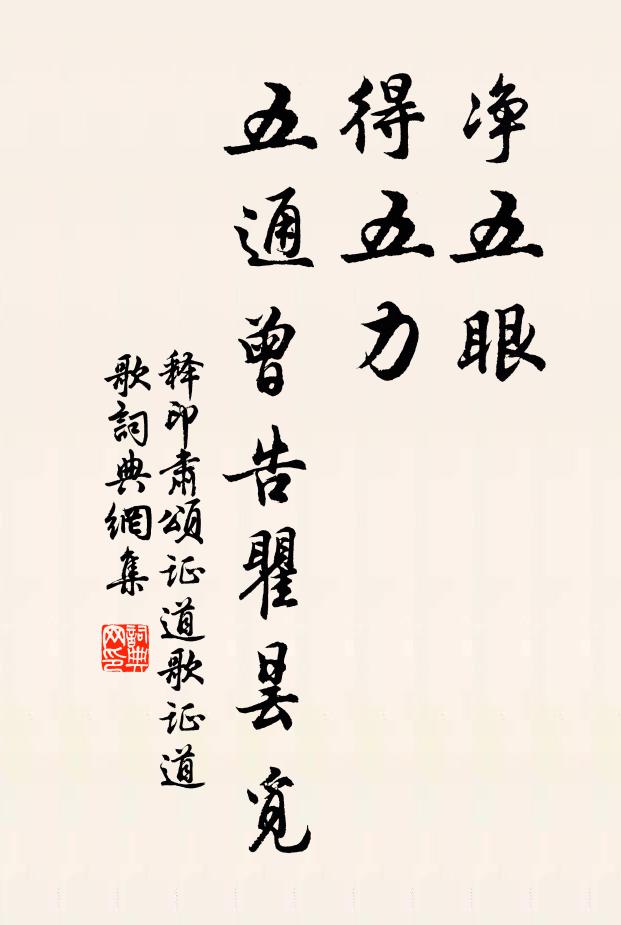 净五眼
得五力
五通曾告瞿昙覓
释印肃颂证道歌证道
歌詞典網集
詞典
网印